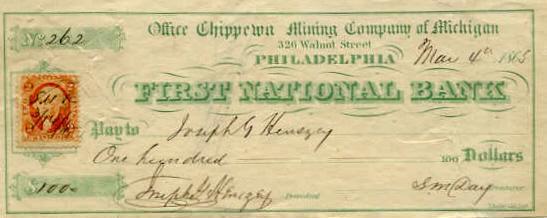 No. 262
Office Chippewa Mining Company of Michigan
326 Walnut Street
PHILADELPHIA Mar 4th 1865
FIRST NATIONAL BANK
Pay to Joseph G Henszey
One hundred 100 Dollars
$100 Joseph G Henszey President S M Day Treasurer